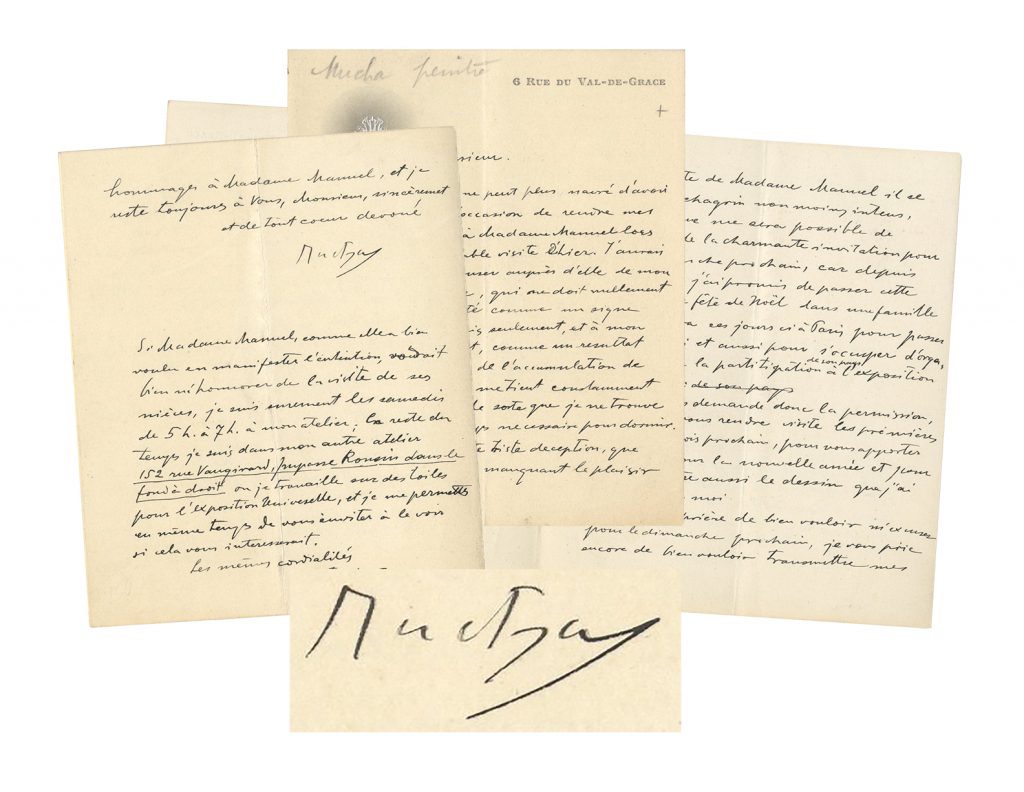 Mucha peintre
6 RUE DU VAL-DE-GRACE
+
sieur.
ne peut plus navré d'avoir
occasion de rendre mes
à Madame Manuel lors
able visite d'hier. J'aurais
user auprès d'elle de mon
, qui ne doit nullement
té comme un signe
seulement, et à mon
t, comme un resultat
de l'accumulation de
me tient constamment
le sorte que je ne trouve
ps necessaire pour dormir.
te triste deception, que
manquant le plaisir
te de Madame Manuel il se
chagrin non moins intens,
ue me sera possible de
de la charmante invitation pour
che prochain, car depuis
j'ai promis de passer cette
fête de Noël dans une famille
ra ces jours ci à Paris pour passer
i et aussi pour s'occuper d'orga,
de son pays
la partitigation à l'exposition
de son pays
s demande donc la permission,
vous rendre visite les premières
ois prochain, pour vous apporter
ur la nouvelle année et pour
re aussi le dessin que j'ai
moi
rière de bien vouloir m'excuser
pour le dimanche prochain, je vous prie
encore de bien vouloir transmettre mes
hommages à Madame Manuel, et je
reste toujours à Vous, Monsieur, sincèremet
et de tout coeur devoué
Mucha
Si Madame Manuel, comme Elle a bien
voulu en manifester l'entention, voudrait
bien m'honorer de la visite de ses
nièces, je suis surement les samedis
de 5h. à 7h. à mon atelier; la reste du
temps je suis dans mon autre atelier
152 rue Vaugirard, Impasse Ronsin dans le
fond à droit ou je travaille sur des toiles
pour l'exposition Univeselle, et je me permetts
en même temps de vous inviter à le voir
si cela vous interesserait.
Les mêmes cordialités
Mucha